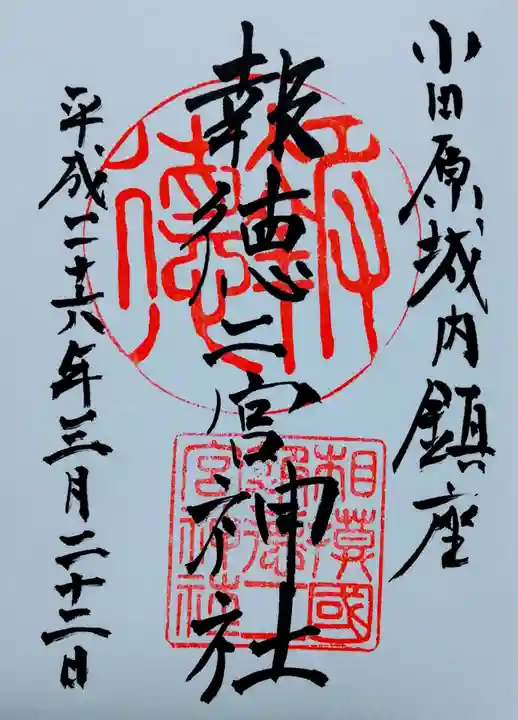 小田原城内鎮座
報徳二宮神社
平成二十六年三月二十二日
報徳
相模國
報徳二
宮神社